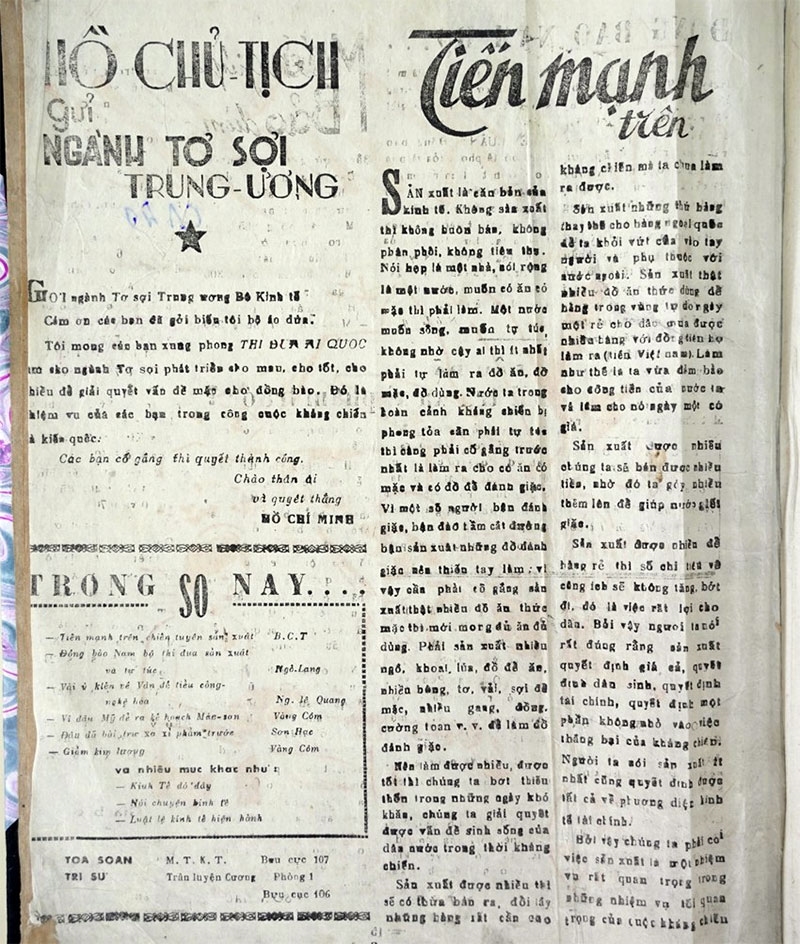 HỒ CHỦ-TỊCH
gửi
NGÀNH TƠ SỢI
TRUNG-ƯƠNG
GỞI ngành Tơ sợi Trung ương Bộ Kinh tế
Cảm ơn các bạn đã gởi biếu tôi bộ áo dứa.
Tôi mong các bạn xung phong THI ĐUA ÁI QUỐC
làm cho ngành Tơ sợi phát triển cho mau, cho tốt, cho
nhiều để giải quyết vấn đề mặc cho đồng bào. Đó là
nhiệm vụ của các bạn trong công cuộc kháng chiến
và kiến quốc.
Các bạn cố gắng thì quyết thành công.
Chào thân ái
và quyết thắng
HỒ CHÍ MINH
TRONG SỐ NÀY....
— Tiến mạnh trên chiến tuyến sản xuất B.C.T
— Đồng bào Nam bộ thi đua sản xuất
và tự túc Ngô.Lang
— Vài ý kiến về Vấn đề tiểu công-
nghệ hóa Ng. lệ Quang
— Vì đâu Mỹ đề ra kế hoạch Mác-san Vàng Cóm
— Đậu đũ bài trừ xa xỉ phẩm trước Sơn Hạc
— Giảm kim lượng Vàng Cóm
và nhiều mục khác như :
— Kinh Tế đó đây
— Nói chuyện kinh tế
— Luật lệ kinh tế hiện hành
TOA SOAN M. T. K. T. Bưu cục 107
TRI SU Trần luyện Cương Phòng 1
Bưu cục 106
Tiến mạnh
trên
SẢN xuất là căn bản của
kinh tế. Không sản xuất
thì không buôn bán, không
phân phối, không tiêu thụ.
Nói hẹp là một nhà, nói rộng
là một nước, muốn có ăn có
mặc thì phải làm. Một nước
muốn sống, muốn tự túc,
không nhờ cậy ai thì ít nhất
phải tự làm ra đồ ăn, đồ
mặc, đồ dùng. Nước ta trong
hoàn cảnh kháng chiến bị
phong tỏa cần phải tự túc
thì càng phải cố gắng trước
nhất là làm ra cho có ăn có
mặc và có đồ để đánh giặc.
Vì một số người bận đánh
giặc, bận đào tầm cất đường
bận sản xuất những đồ đánh
giặc nên thiếu tay làm : vì
vậy cần phải cố gắng sản
xuất thật nhiều đồ ăn thức
mặc thì mới mong đủ ăn đủ
dùng. Phải sản xuất nhiều
ngô, khoai, lúa, đồ để ăn,
nhiều bông, tơ, vải, sợi để
mặc, nhiều gang, đồng,
cường toan v. v. để làm đồ
đánh giặc.
Nên làm được nhiều, được
tốt thì chúng ta bớt thiếu
thốn trong những ngày khó
khăn, chúng ta giải quyết
được vấn đề sinh sống của
dân nước trong thời kháng
chiến.
Sản xuất được nhiều thì
sẽ có thừa bán ra, đổi lấy
những hàng rất cần cao
kháng chiến mà ta chưa làm
ra được.
Sản xuất những thứ hàng
thay thế cho hàng ngoại quốc
để ta khỏi vứt của vào tay
người và phụ thuộc với
nước ngoài. Sản xuất thật
nhiều đồ ăn thức dùng để
hàng trong vùng tự do ngày
một rẻ cho dân mua được
nhiều hàng với đồng tiền họ
làm ra (tiền Việt nam). Làm
như thế là ta vừa đảm bảo
cho đồng tiền của nước ta
và làm cho nó ngày một có
giá.
Sản xuất được nhiều
chúng ta sẽ bán được nhiều
tiền, nhờ đó ta góp nhiều
thêm lên để giúp nước giết
giặc.
Sản xuất được nhiều để
hàng rẻ thì số chi tiêu về
công ích sẽ không tăng, bớt
đi, đó là việc rất lợi cho
dân. Bởi vậy người ta nói
rất đúng rằng sản xuất
quyết định giá cả, quyết
định dân sinh, quyết định
tài chính, quyết định một
phần không nhỏ vào việc
thắng bại của kháng chiến.
Người ta nói sản xuất ít
nhất cũng quyết định được
tất cả về phương diện kinh
tế tài chính.
Bởi vậy chúng ta phải coi
việc sản xuất là một nhiệm
vụ rất quan trọng trong
những nhiệm vụ tối quan
trọng của cuộc kháng chiến